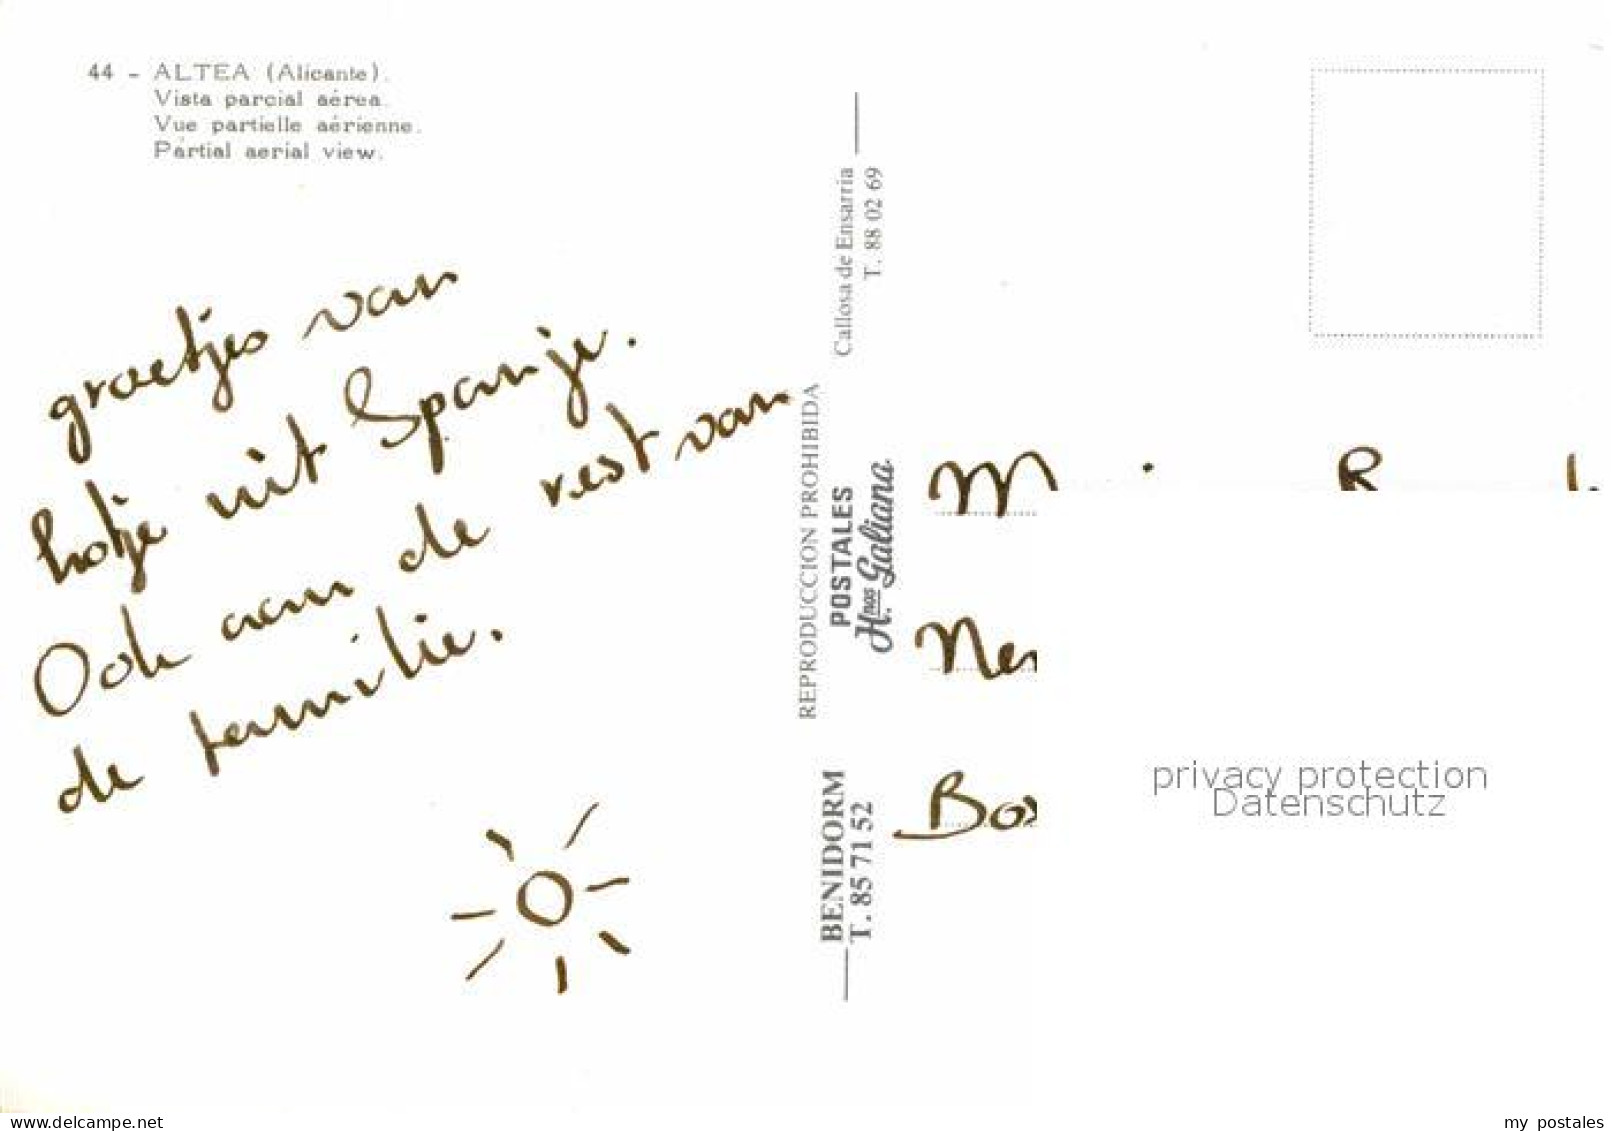 44 - ALTEA (Alicante).
Vista parcial aérea.
Vue partielle aérienne.
Partial aerial view.
groetjes van
hotje uit Spanje.
Ook aan de rest van
de familie.
BENIDORM
T. 85 71 52
REPRODUCCION PROHIBIDA
POSTALES
Hnos Galiana
Callosa de Ensarria
T. 88 02 69
privacy protection
Datenschutz
www.delcampe.net
my postales